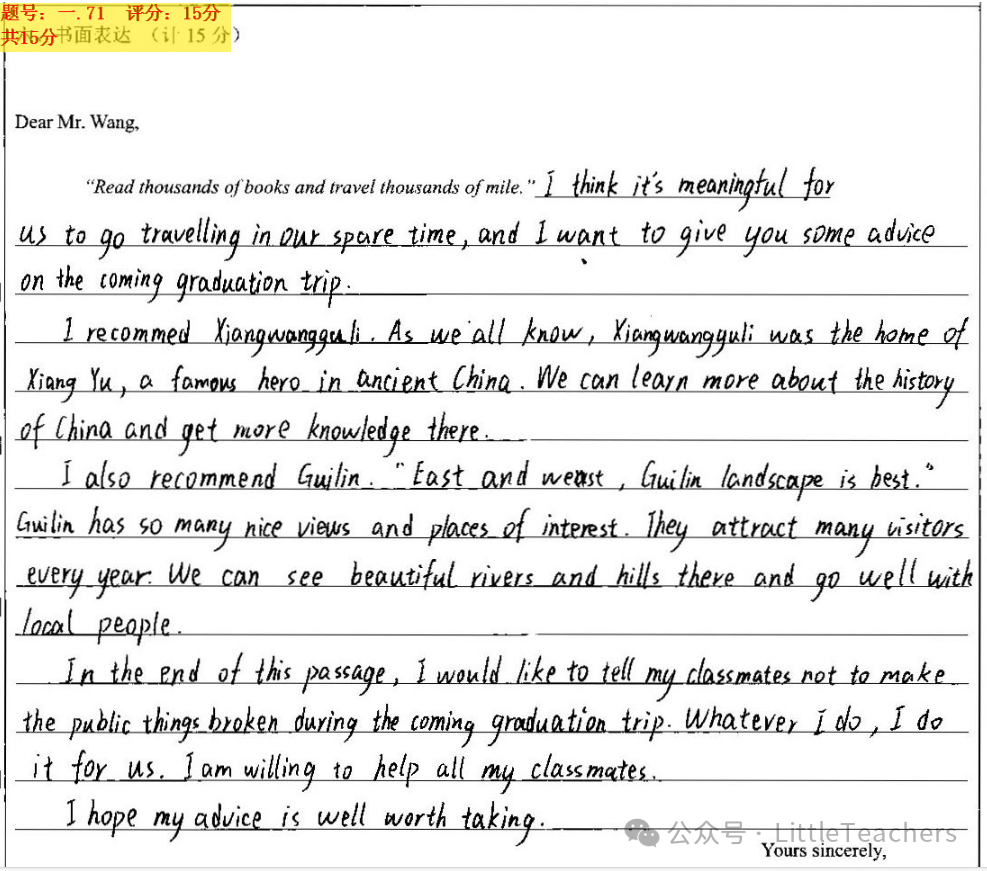 题号: 一.71 评分: 15分
共15分 书面表达 (计 15 分)
Dear Mr. Wang,
"Read thousands of books and travel thousands of mile." I think it's meaningful for
us to go travelling in our spare time, and I want to give you some advice
on the coming graduation trip.
I recommed Xiangwangguli. As we all know, Xiangwangguli was the home of
Xiang Yu, a famous hero in ancient China. We can learn more about the history
of China and get more knowledge there.
I also recommend Guilin. "East and weast, Guilin landscape is best."
Guilin has so many nice views and places of interest. They attract many visitors
every year. We can see beautiful rivers and hills there and go well with
local people.
In the end of this passage, I would like to tell my classmates not to make
the public things broken during the coming graduation trip. Whatever I do, I do
it for us. I am willing to help all my classmates.
I hope my advice is well worth taking.
公众号 · LittleTeachers
Yours sincerely,